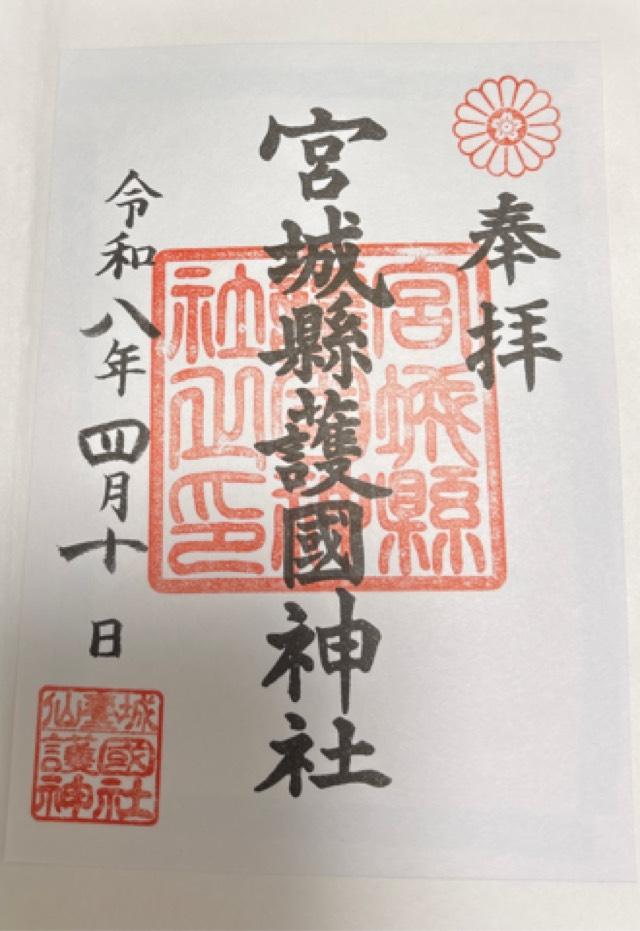 奉拝
宮城縣護國神社
宮城縣護國神社之印
令和八年四月十日
仙臺城
護國
神社